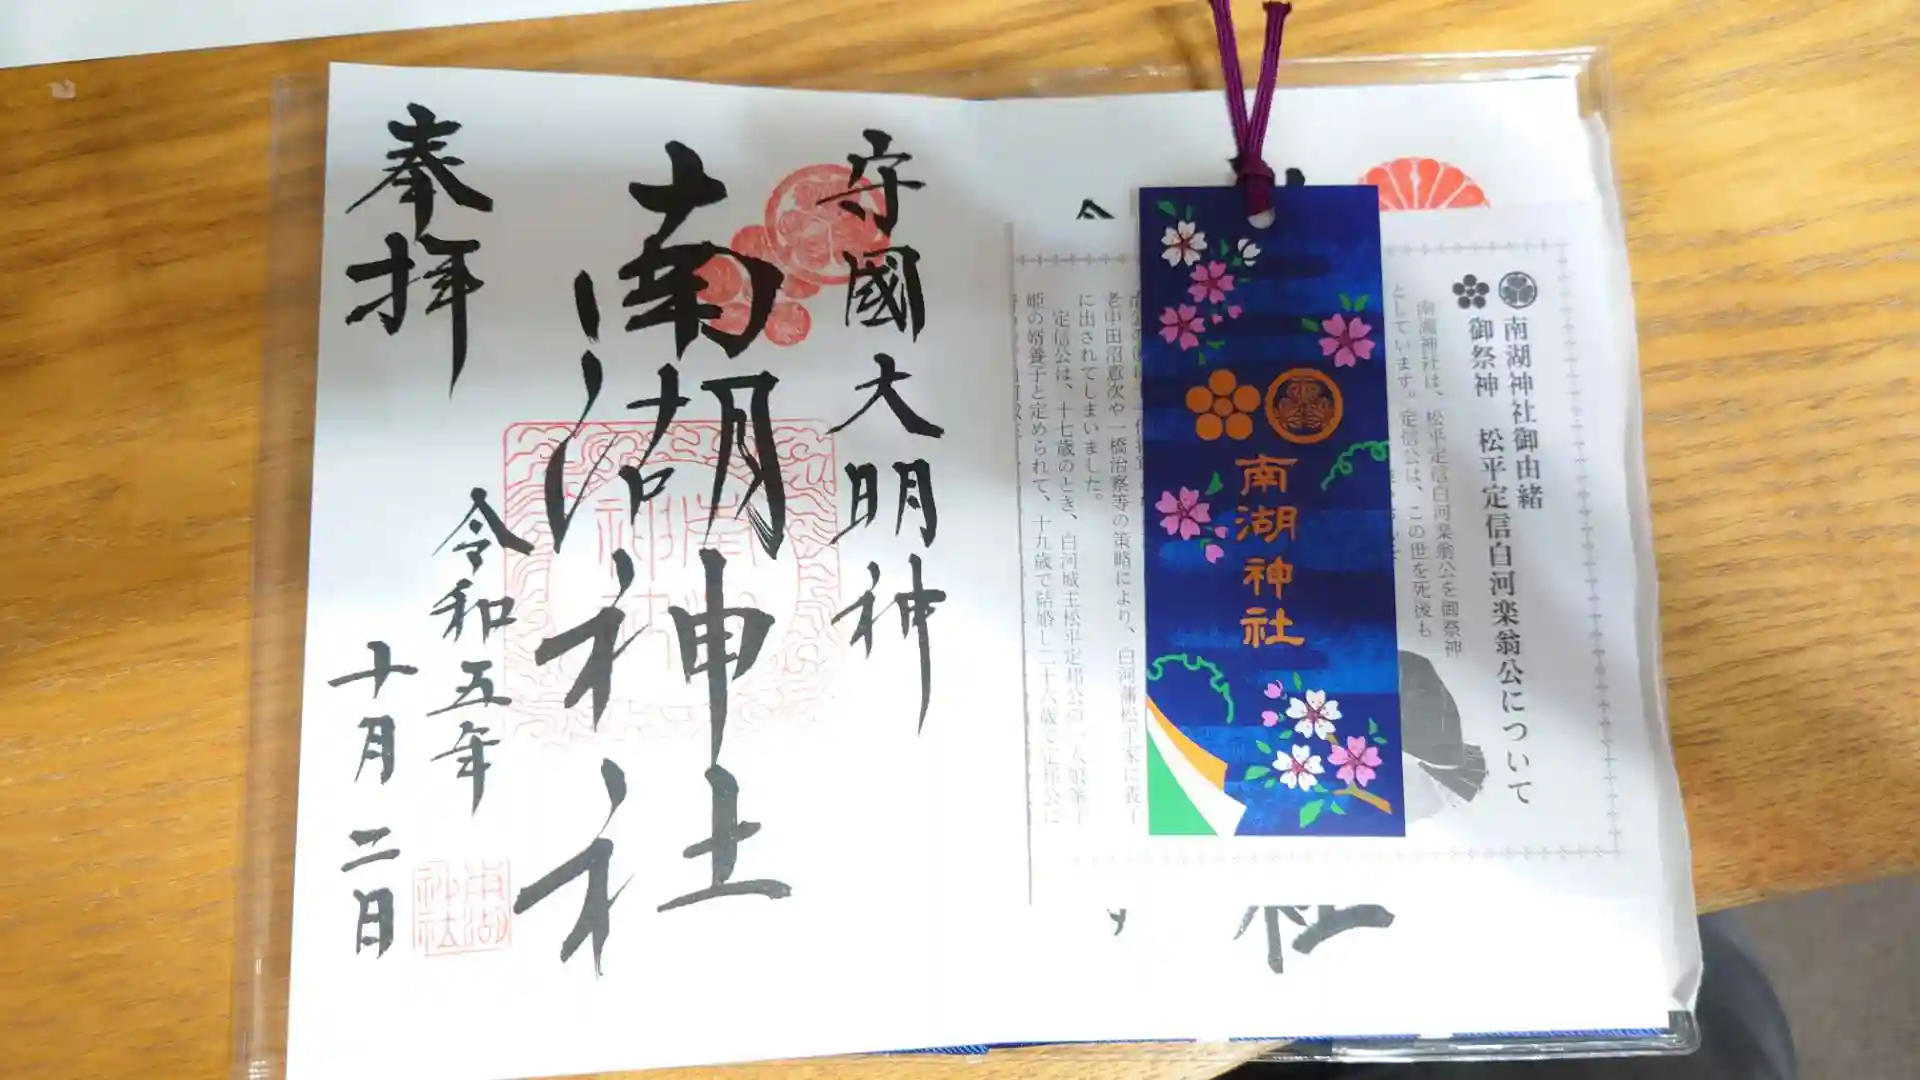 守國大明神
南湖神社
奉拝
令和五年
十月二日
南湖神社
南湖神社
南湖神社御由緒
御祭神 松平定信白河楽翁公について
南湖神社は、松平定信白河楽翁公を御祭神
としています。定信公は、この世を死後も
老中田沼意次や一橋治察等の策略により、白河藩松平家に養子
に出されてしまいました。
定信公は、十七歳のとき、白河城主松平定邦公の一人娘峯子
姫の婿養子と定められて、十九歳で結婚し二十六歳で定邦公に
南湖神社
社